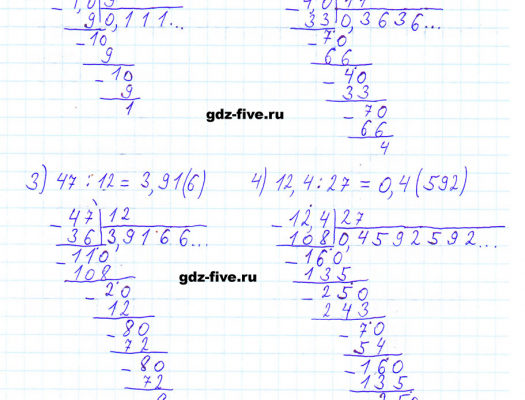 - 1,0 9
9 0,111...
- 10
9
- 10
9
1
- 1,0 11
33 0,3636...
- 70
66
- 40
33
- 70
66
4
gdz-five.ru
3) 47 : 12 = 3,91(6)
- 47 12
36 3,9166...
- 110
108
- 20
12
- 80
72
- 80
72
4) 12,4 : 27 = 0,4(592)
- 12,4 27
108 0,4592592...
- 160
135
- 250
243
- 70
54
- 160
135
250
gdz-five.ru